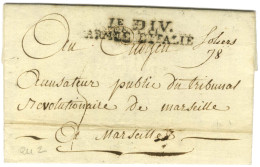 1E DIV.
ARMÉE D'ITALIE
Au Citoyen
accusateur public du tribunal
revolutionaire de marseille
A Marseille